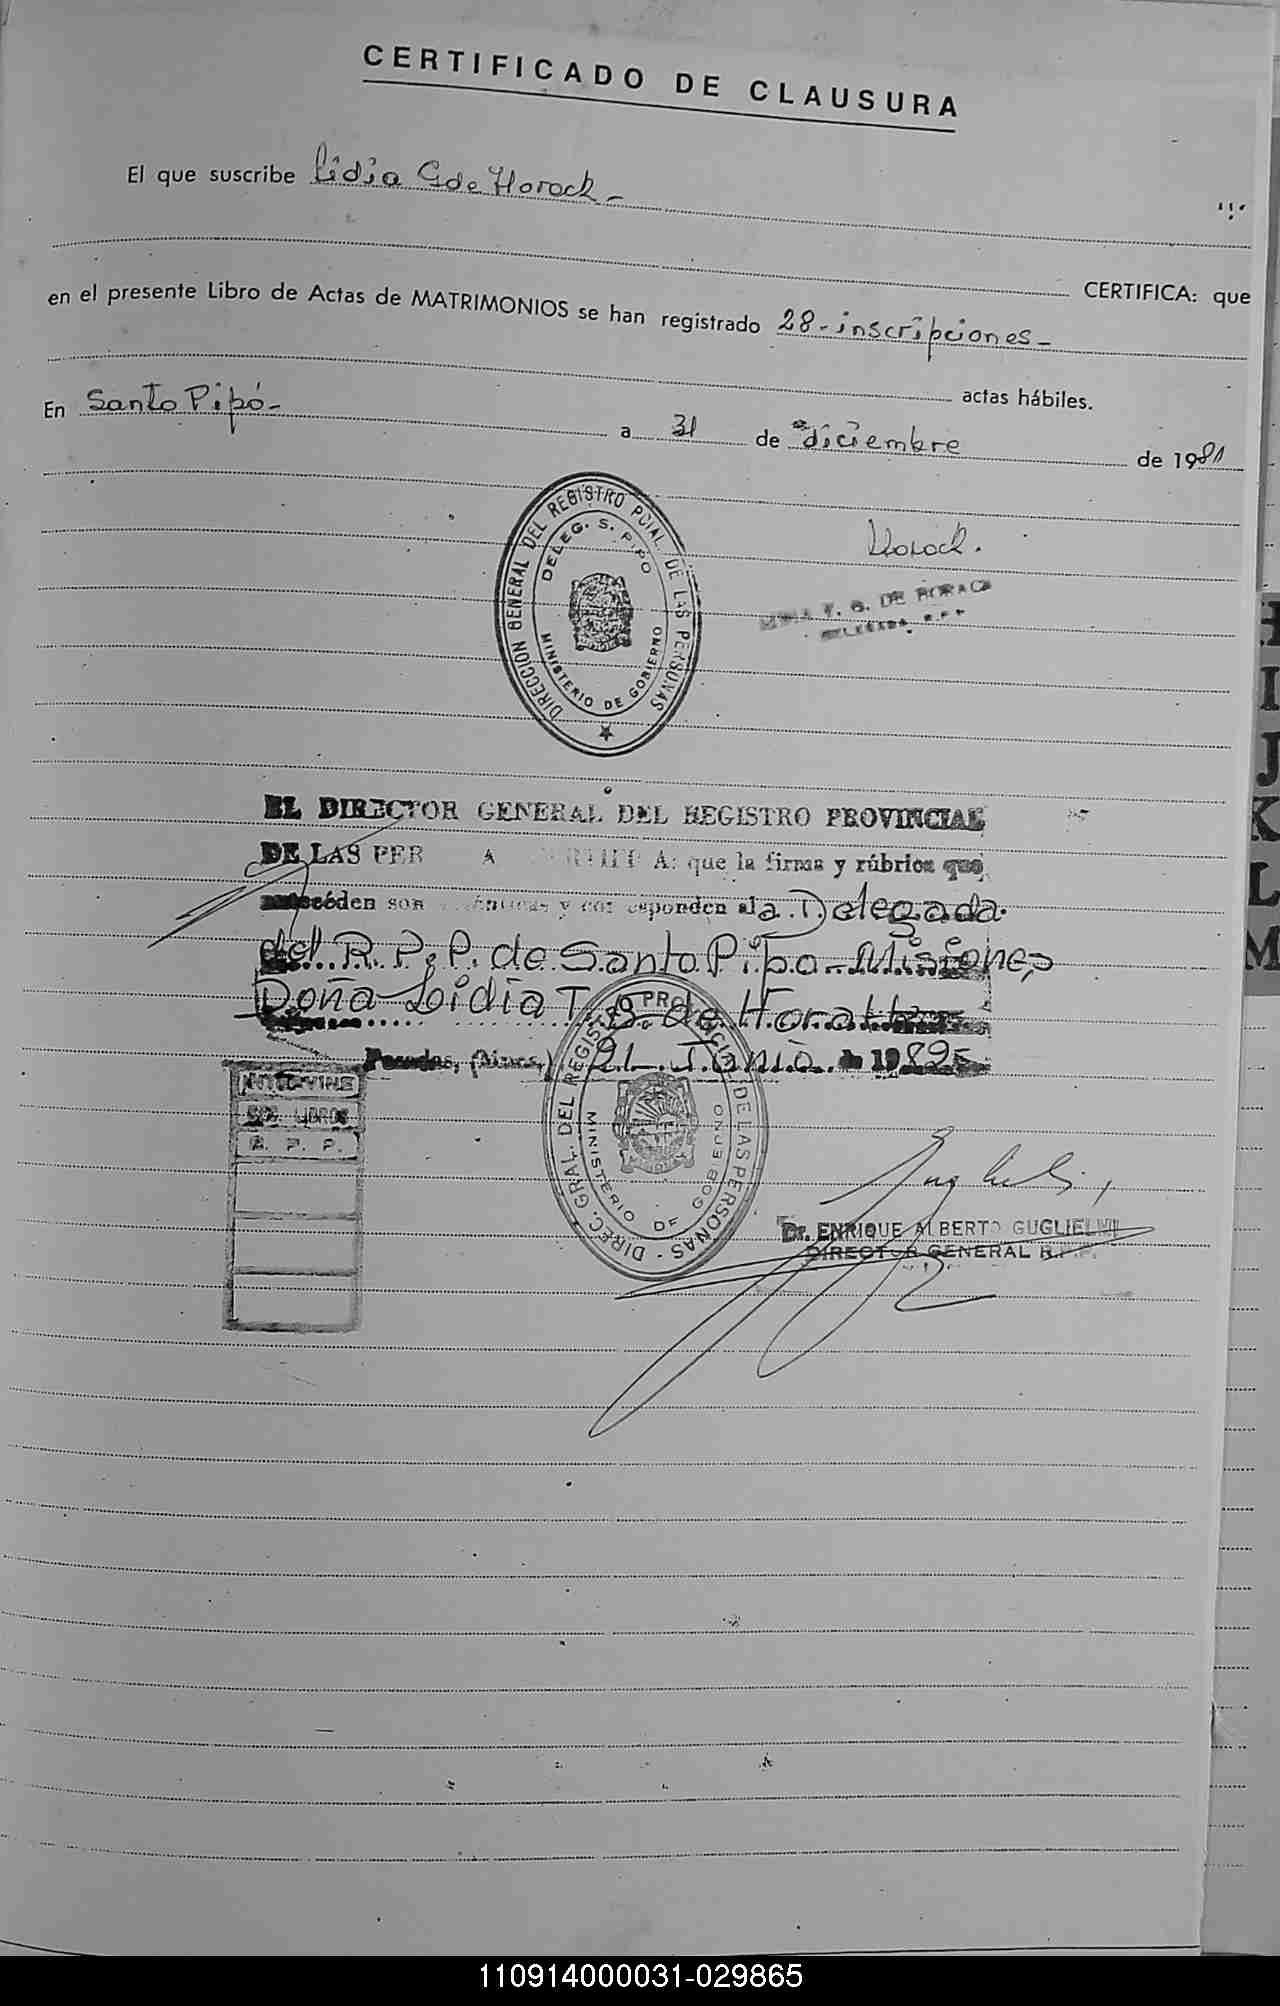 CERTIFICADO DE CLAUSURA
El que suscribe Lidia G de Horack-
CERTIFICA: que
en el presente Libro de Actas de MATRIMONIOS se han registrado 28-inscripciones-
actas hábiles.
En Santo Pipó- a 31 de diciembre de 1981
DIRECCION GENERAL DEL REGISTRO PCIAL. DE LAS PERSONAS
DELEG. S. PIPO
MINISTERIO DE GOBIERNO
Horack.
DE HORACK
EL DIRECTOR GENERAL DEL REGISTRO PROVINCIAL
DE LAS PER A A: que la firma y rúbrica que
anteceden son y corresponden al a Delegada
del R.P.P. de Santo Pipo-Misiones
Doña Lidia T. G. de Horack
Posadas, (Mnes.) 21 Junio de 1982
SEC. LIBROS
R. P. P.
DIREC. GRAL. DEL REGISTRO PROVINCIAL DE LAS PERSONAS -
MINISTERIO DE GOBIERNO
Dr. ENRIQUE ALBERTO GUGLIELMI
DIRECTOR GENERAL R.P.P.
H
I
J
K
L
M
110914000031-029865